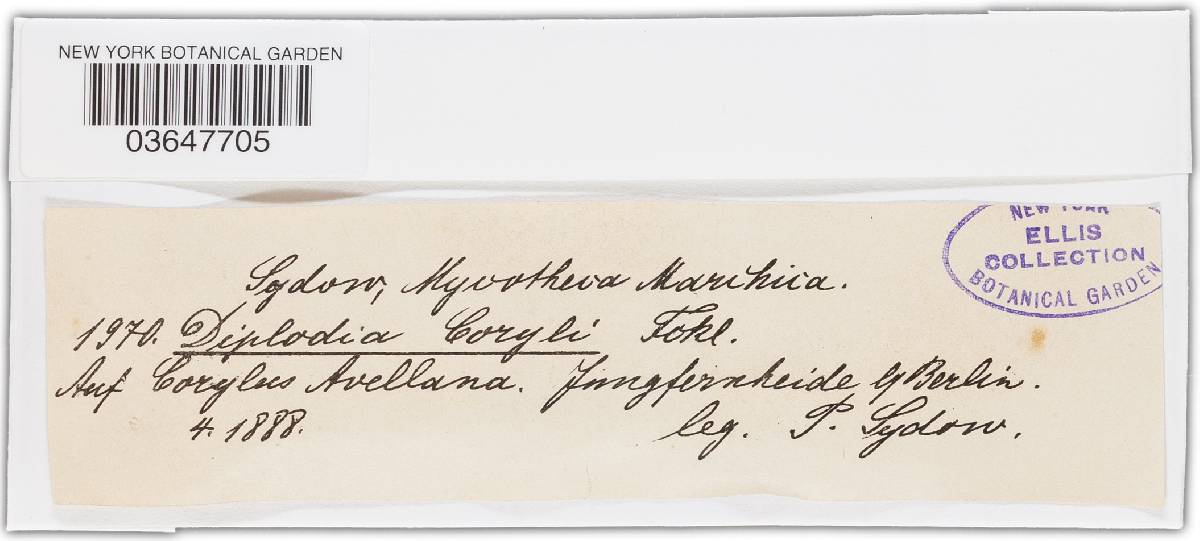 NEW YORK BOTANICAL GARDEN
03647705
NEW YORK
ELLIS
COLLECTION
BOTANICAL GARDEN
Sydow, Mycotheca Marchica.
1970. Diplodia Coryli Fckl.
Auf Corylus Avellana. Jungfernheide b/Berlin.
4. 1888. leg. P. Sydow.